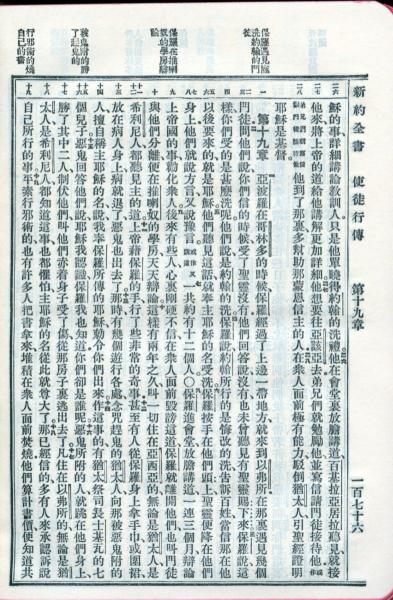 新約全書 使徒行傳 第十九章 一百七十六
穌的事詳細講論教訓人只是他單曉得約翰的洗禮他在會堂裏放膽講道百基拉亞居拉聽見就接
他來將上帝的道給他講解更加詳細他想要往亞該亞去弟兄們就勉勵他並寫信請門徒接待他
他到了那裏多幫助那蒙恩信主的人在衆人面前極有能力駁倒猶太人引聖經證明
耶穌是基督
第十九章 亞波羅在哥林多的時候保羅經過了上邊一帶地方就來到以弗所在那裏遇見幾個
門徒問他們說你們信的時候受了聖靈沒有他們回答說沒有也未曾聽見有聖靈賜下來保羅說這
樣你們受的是甚麼洗呢他們說是約翰的洗保羅說約翰所行的是悔改的洗告訴百姓當信那在他
以後要來的就是耶穌他們聽見這話就奉主耶穌的名受洗保羅按手在他們頭上聖靈便降在他們
身上他們就說方言又說豫言一共約有十二個人○保羅進會堂放膽講道一連三個月辯論
上帝國的事勸化衆人後來有些人心裏剛硬不信在衆人面前毀謗這道保羅就離開他們也叫門徒
與他們分離便在推喇奴的學房天天辯論這樣有兩年之久叫一切住在亞西亞的無論是猶太人是
希利尼人都聽見主的道上帝藉保羅的手行了些非常的奇事甚至有人從保羅身上拿手巾或圍裙
放在病人身上病就退了惡鬼也出去了那時有幾個遊行各處念咒趕鬼的猶太人向那被惡鬼附的
人擅自稱主耶穌的名說我奉保羅所傳的耶穌勒令你們出來作這事的有猶太祭司長士基瓦的七
個兒子惡鬼回答他們說耶穌我認識保羅我也知道你們卻是誰呢惡鬼所附的人就跳在他們身上
勝了其中二人制伏他們叫他們赤着身子受了傷從那房子裏逃出去了凡住在以弗所的無論是猶
太人是希利尼人都知道這事也都懼怕主耶穌的名從此就尊大了那已經信的多有人來承認訴說
自己所行的事平素行邪術的也有許多人把書拿來堆積在衆人面前焚燒他們算計書價便知道共
保羅遇見施
洗約翰的門
徒
保羅在推喇
奴的學房辯
論
被鬼附的勝
了趕鬼的
行邪術的燒
自己的書